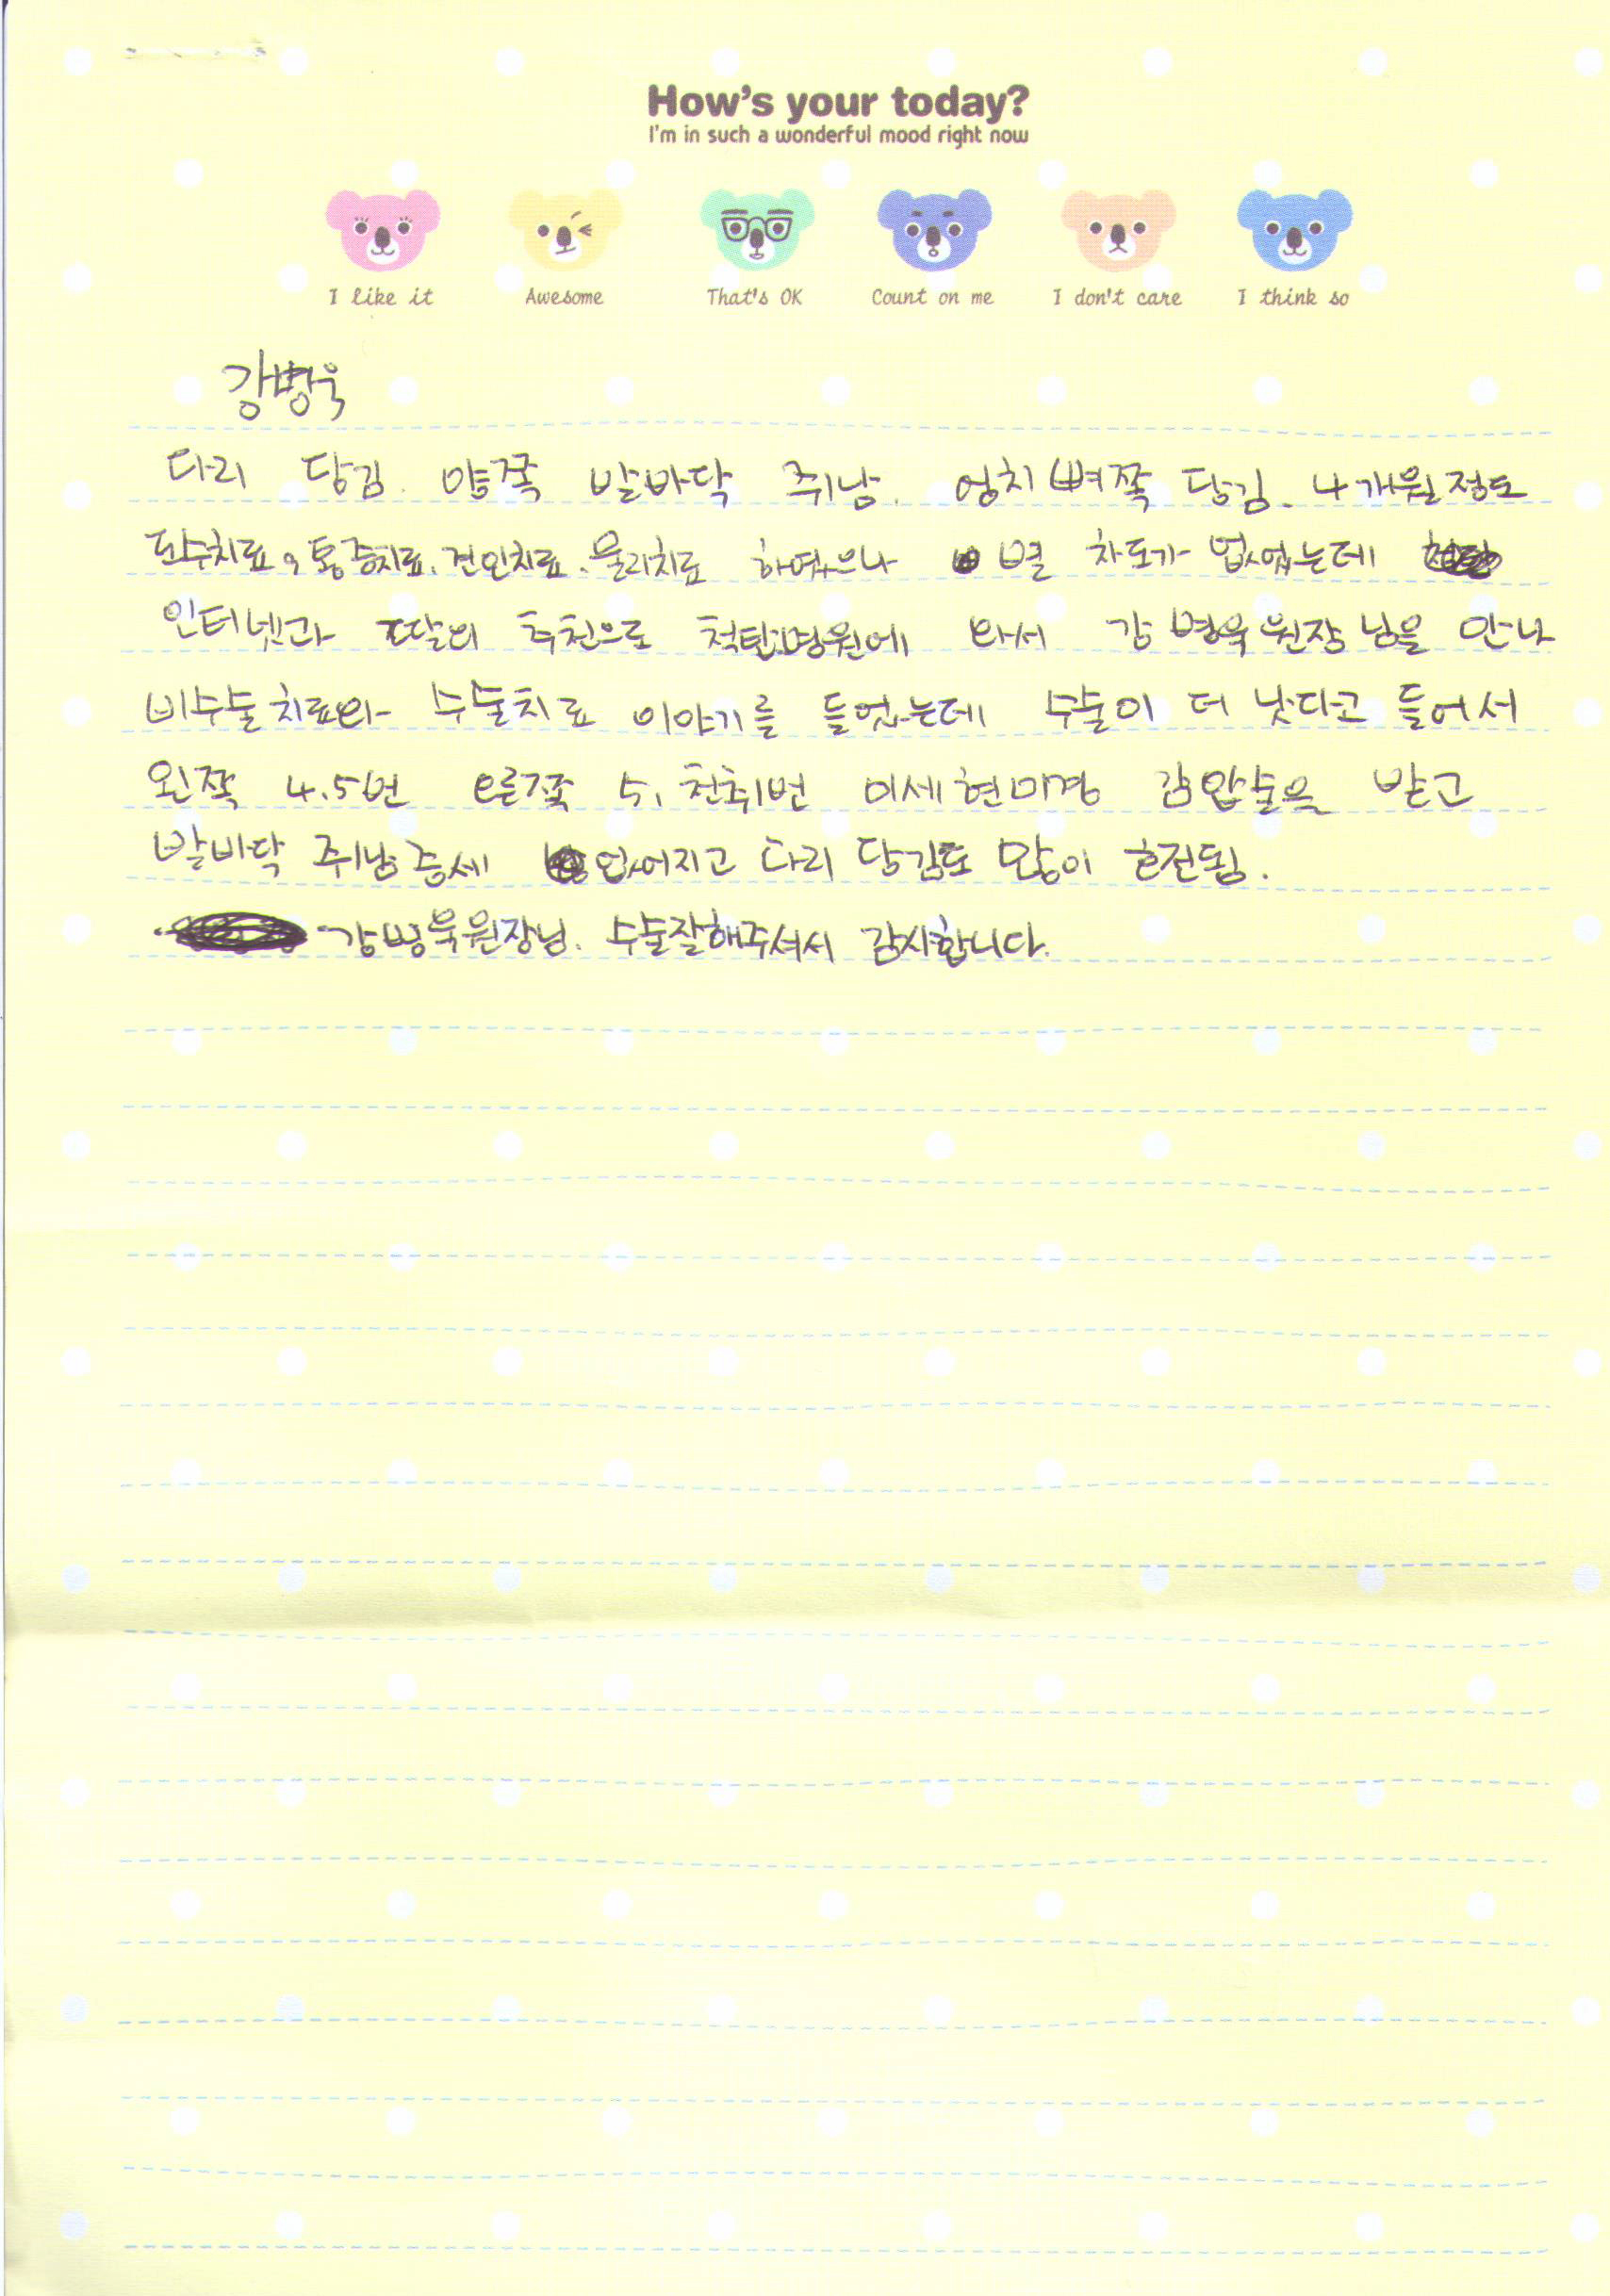 How's your today?
I'm in such a wonderful mood right now
I like it Awesome That's OK Count on me I don't care I think so
강병욱
다리 당김. 양쪽 발바닥 쥐남. 엉치뼈쪽 당김. 4개월정도
도수치료, 통증치료, 견인치료, 물리치료 하였으나 별 차도가 없었는데
인터넷과 딸의 추천으로 척탑병원에 와서 강병욱원장님을 만나
비수술치료와 수술치료 이야기를 들었는데 수술이 더 낫다고 들어서
왼쪽 4.5번 오른쪽 5, 천취번 미세현미경 감압술을 받고
발바닥 쥐남증세 없어지고 다리 당김도 많이 호전됨.
강병욱원장님. 수술잘해주셔서 감사합니다.